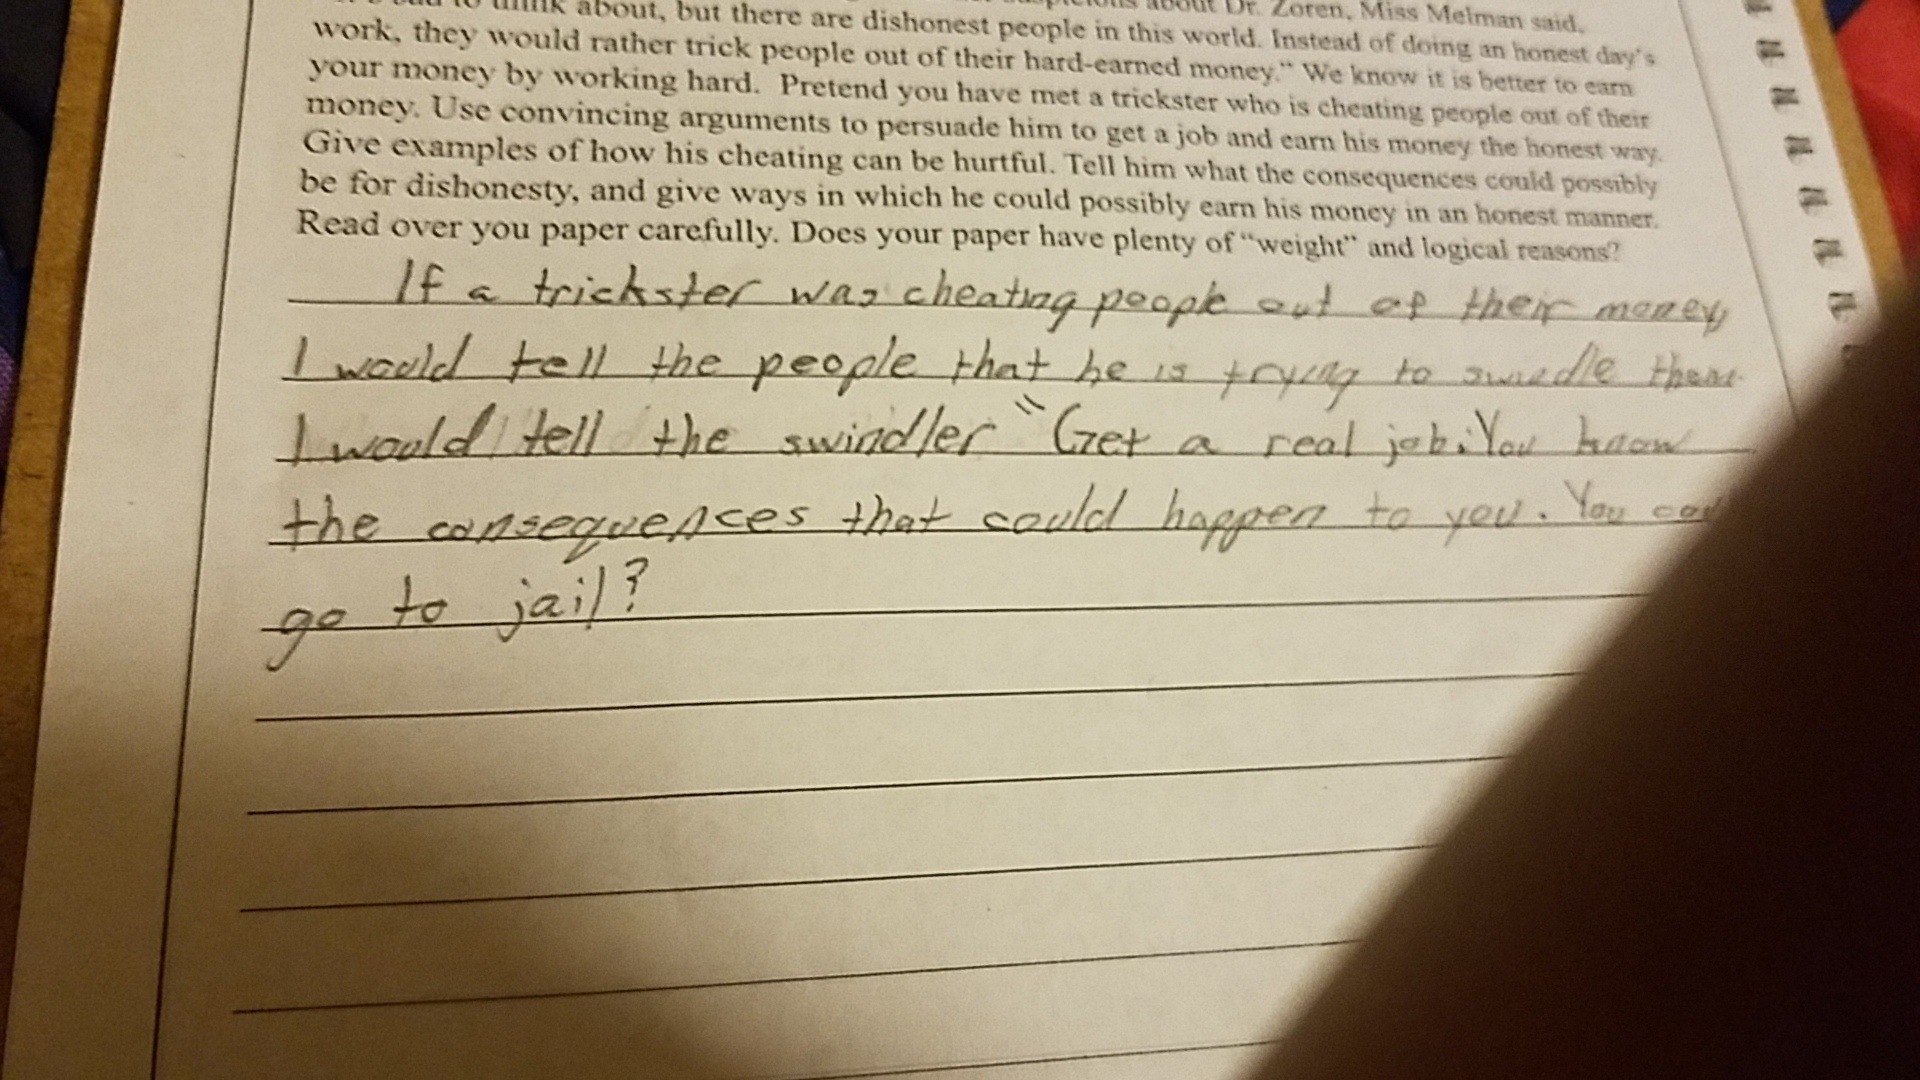 to think about, but there are dishonest people in this world. Instead of doing an honest day's
work, they would rather trick people out of their hard-earned money." We know it is better to earn
your money by working hard. Pretend you have met a trickster who is cheating people out of their
money. Use convincing arguments to persuade him to get a job and earn his money the honest way.
Give examples of how his cheating can be hurtful. Tell him what the consequences could possibly
be for dishonesty, and give ways in which he could possibly earn his money in an honest manner.
Read over you paper carefully. Does your paper have plenty of "weight" and logical reasons?
If a trickster was cheating people out of their money,
I would tell the people that he is trying to swindle them.
I would tell the swindler "Get a real job. You know
the consequences that could happen to you. You
go to jail?